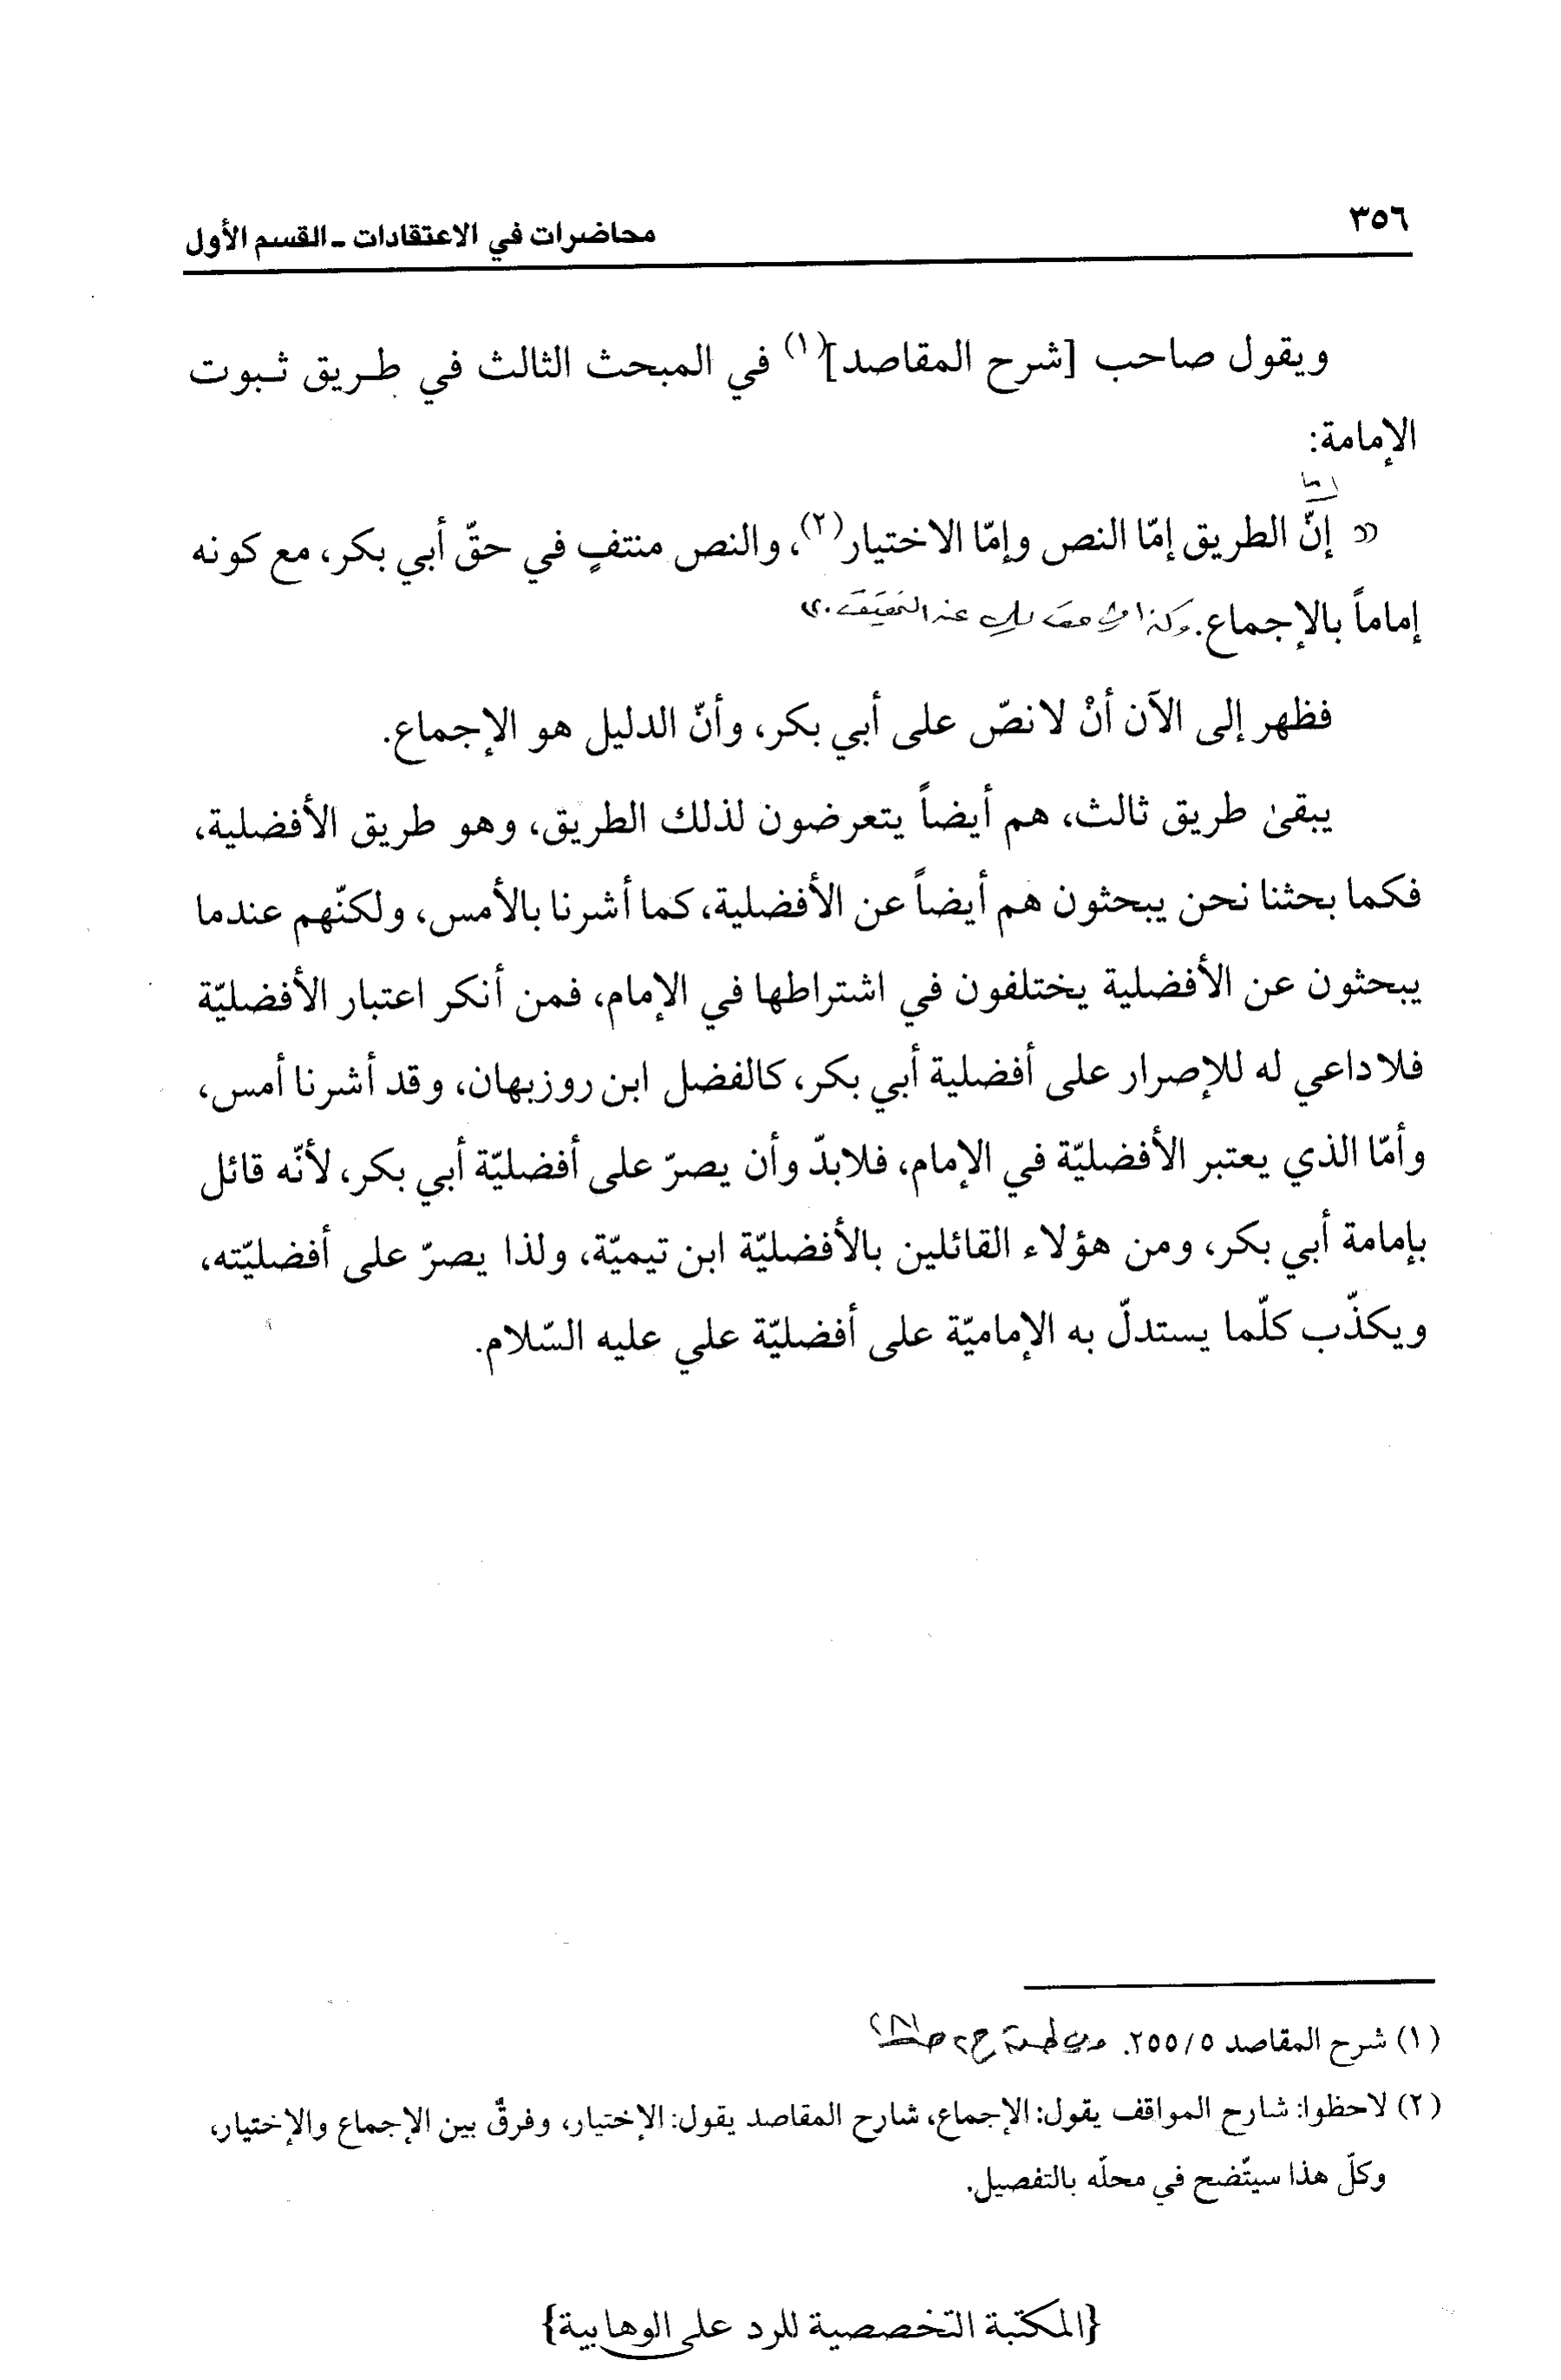 ٣٥٦
محاضرات في الاعتقادات ـ القسم الأول
ويقول صاحب [شرح المقاصد](١) في المبحث الثالث في طريق ثبوت
الإمامة:
« إنّ الطريق إمّا النص وإمّا الاختيار(٢)، والنص منتفٍ في حقّ أبي بكر، مع كونه
إماماً بالإجماع. وكذا عند التحقيق.»
فظهر إلى الآن أنْ لا نصّ على أبي بكر، وأنّ الدليل هو الإجماع.
يبقىٰ طريق ثالث، هم أيضاً يتعرضون لذلك الطريق، وهو طريق الأفضلية،
فكما بحثنا نحن يبحثون هم أيضاً عن الأفضلية، كما أشرنا بالأمس، ولكنّهم عندما
يبحثون عن الأفضلية يختلفون في اشتراطها في الإمام، فمن أنكر اعتبار الأفضليّة
فلا داعي له للإصرار على أفضلية أبي بكر، كالفضل ابن روزبهان، وقد أشرنا أمس،
وأمّا الذي يعتبر الأفضليّة في الإمام، فلابدّ وأن يصرّ على أفضليّة أبي بكر، لأنّه قائل
بإمامة أبي بكر، ومن هؤلاء القائلين بالأفضليّة ابن تيميّة، ولذا يصرّ على أفضليّته،
ويكذّب كلّما يستدلّ به الإماميّة على أفضليّة علي عليه السّلام.
(١) شرح المقاصد ٢٥٥/٥.
(٢) لاحظوا: شارح المواقف يقول: الإجماع، شارح المقاصد يقول: الإختيار، وفرقٌ بين الإجماع والإختيار،
وكلّ هذا سيتّضح في محلّه بالتفصيل.
{المكتبة التخصصية للرد على الوهابية}